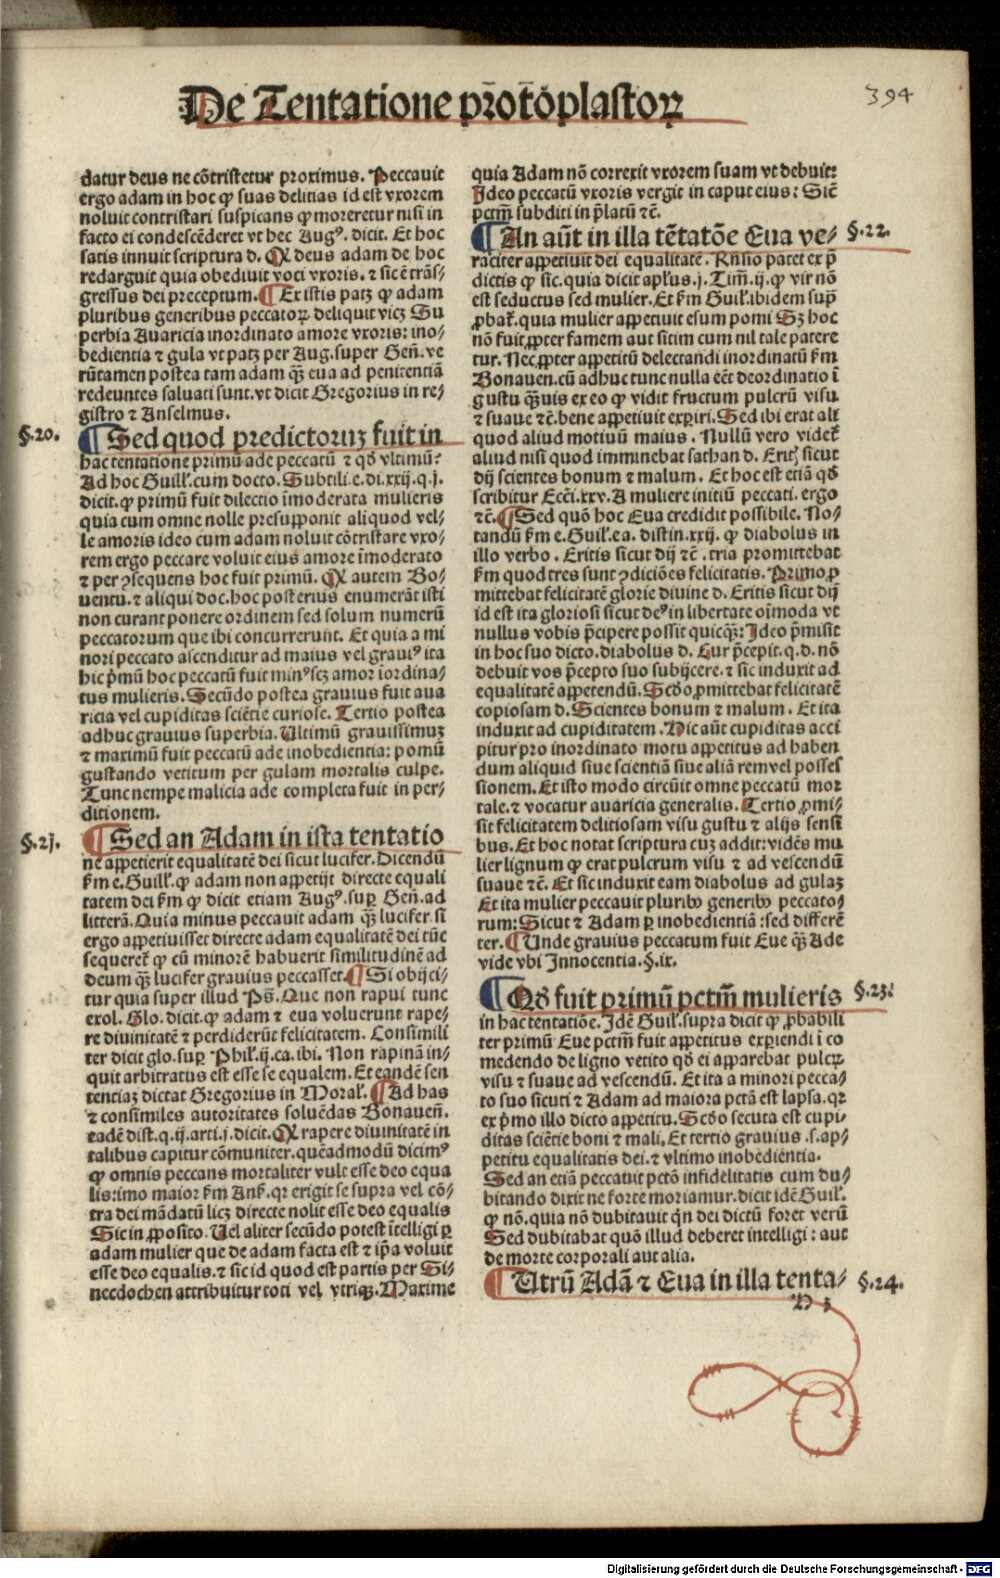 De Tentatione pr̄otōplastoꝝ
394
datur deus ne cōtristetur proximus. Peccauit
ergo adam in hoc ꝙ suas delitias id est vxorem
noluit contristari suspicans ꝙ moreretur nisi in
facto ei condescēderet vt hec Augꝰ. dicit. Et hoc
satis innuit scriptura d. Qꝛ deus adam de hoc
redarguit quia obediuit voci vxoris. ⁊ sic ē trās/
gressus dei preceptum. ¶ Ex istis patꝫ ꝙ adam
pluribus generibus peccatoꝝ deliquit vicꝫ Su
perbia Auaricia inordinato amore vxoris: ino/
bedientia ⁊ gula vt patꝫ per Aug. super Geñ. ve
rūtamen postea tam adam qꝫ̄ eua ad penitentiā
redeuntes saluati sunt. vt dicit Gregorius in re/
gistro ⁊ Anselmus.
§.20.
¶ Sed quod predictoruꝫ fuit in
hac tentatione primū ade peccatū ⁊ qđ vltimū?
Ad hoc Guill̄. cum docto. Subtili. e. di. xxij. q. j.
dicit. ꝙ primū fuit dilectio īmoderata mulieris
quia cum omne nolle presupponit aliquod vel/
le amoris ideo cum adam noluit cōtristare vxo/
rem ergo peccare voluit eius amore īmoderato
⁊ per ꝯsequens hoc fuit primū. Qꝛ autem Bo/
uentu. ⁊ aliqui doc. hoc posterius enumerāt isti
non curant ponere ordinem sed solum numerū
peccatorum que ibi concurrerunt. Et quia a mi
nori peccato ascenditur ad maius vel grauiꝰ ita
hic p̄mū hoc peccatū fuit minꝰ scꝫ amor iordina/
tus mulieris. Secūdo postea grauius fuit aua
ricia vel cupiditas sciētie curiose. Tertio postea
adhuc grauius superbia. Ultimū grauissimuꝫ
⁊ maximū fuit peccatū ade inobedientia: pomū
gustando vetitum per gulam mortalis culpe.
Tunc nempe malicia ade completa fuit in per/
ditionem.
§.2j.
¶ Sed an Adam in ista tentatio
ne appetierit equalitatē dei sicut lucifer. Dicendū
s̄m e. Guill̄. ꝙ adam non appetijt directe equali
tatem dei s̄m ꝙ dicit etiam Augꝰ. suꝑ Geñ. ad
litterā. Quia minus peccauit adam qꝫ̄ lucifer. si
ergo appetiuisset directe adam equalitatē dei tūc
sequeret̄ ꝙ cū minorē habuerit similitudinē ad
deum qꝫ̄ lucifer grauius peccasset. ¶ Si obijci/
tur quia super illud Ps̄. Que non rapui tunc
exol. Glo. dicit. ꝙ adam ⁊ eua voluerunt rape/
re diuinitatē ⁊ perdiderūt felicitatem. Consimili
ter dicit glo. suꝑ Phil̄. ij. ca. ibi. Non rapinā in/
quit arbitratus est esse se equalem. Et eandē sen
tentiaꝫ dictat Gregorius in Moral̄. ¶ Ad has
⁊ consimiles autoritates soluēdas Bonaueñ.
eadē dist. q. ij. arti. j. dicit. Qꝛ rapere diuinitatē in
talibus capitur cōmuniter. quēadmodū dicimꝰ
ꝙ omnis peccans mortaliter vult esse deo equa
lis: imo maior s̄m Ans̄. qꝛ erigit se supra vel cō/
tra dei mādatū licꝫ directe nolit esse deo equalis
Sic in ꝓposito. Uel aliter secūdo potest ītelligi ꝑ
adam mulier que de adam facta est ⁊ ip̄a voluit
esse deo equalis. ⁊ sic id quod est partis per Si/
necdochen attribuitur toti vel vtriqꝫ. Maxime
quia Adam nō correxit vxorem suam vt debuit:
Ideo peccatū vxoris vergit in caput eius: Sic̄
pct̄m̄ subditi in p̄latū ⁊c̄.
¶ An aūt in illa tētatōe Eua ve/
§.22.
raciter appetiuit dei equalitatē. Rn̄sio patet ex p̄
dictis ꝙ sic. quia dicit apl̄us. j. Tim̄. ij. ꝙ vir nō
est seductus sed mulier. Et s̄m Guil̄. ibidem sup̄
ꝓbat̄. quia mulier appetiuit esum pomi Sꝫ hoc
nō fuit ꝓpter famem aut sitim cum nil tale patere
tur. Nec ꝓpter appetitū delectandi inordinatū s̄m
Bonauen. cū adhuc tunc nulla eēt deordinatio ī
gustu qꝫ̄uis ex eo ꝙ vidit fructum pulcrū visu
⁊ suaue ⁊c̄. bene appetiuit exꝑiri. Sed ibi erat ali
quod aliud motiuū maius. Nullū vero videt̄
aliud nisi quod imminebat sathan d. Eritꝫ sicut
dij scientes bonum ⁊ malum. Et hoc est etiā qđ
scribitur Ecc̄i. xxv. A muliere initiū peccati. ergo
⁊c̄. ¶ Sed quō hoc Eua credidit possibile. No/
tandū s̄m e. Guil̄. ea. distin. xxij. ꝙ diabolus in
illo verbo. Eritis sicut dij ⁊c̄. tria promittebat
s̄m quod tres sunt ꝯdiciōes felicitatis. Primo ꝓ
mittebat felicitatē glorie diuine d. Eritis sicut dij
id est ita gloriosi sicut deꝰ in libertate oīmoda vt
nullus vobis p̄cipere possit quicqꝫ̄: Ideo p̄misit
in hoc suo dicto. diabolus d. Cur p̄cepit. q. d. nō
debuit vos p̄cepto suo subijcere. ⁊ sic induxit ad
equalitatē appetendū. Scđo ꝓmittebat felicitatē
copiosam d. Scientes bonum ⁊ malum. Et ita
induxit ad cupiditatem. Hic aūt cupiditas acci
pitur pro inordinato motu appetitus ad haben
dum aliquid siue scientiā siue aliā rem vel posses
sionem. Et isto modo circūit omne peccatū mor
tale. ⁊ vocatur auaricia generalis. Tertio ꝓmi/
sit felicitatem delitiosam visu gustu ⁊ alijs sensi
bus. Et hoc notat scriptura cuꝫ addit: vidēs mu
lier lignum ꝙ erat pulcrum visu ⁊ ad vescendū
suaue ⁊c̄. Et sic induxit eam diabolus ad gulaꝫ
Et ita mulier peccauit pluribꝰ generibꝰ peccato/
rum: Sicut ⁊ Adam ꝑ inobedientiā: sed differē
ter. ¶ Unde grauius peccatum fuit Eue qꝫ̄ Ade
vide vbi Innocentia. §. ix.
¶ Qđ fuit primū pct̄m̄ mulieris
§.23.
in hac tentatiōe. Idē Guil̄. supra dicit ꝙ ꝓbabili
ter primū Eue pct̄m fuit appetitus exꝑiendi ī co
medendo de ligno vetito qđ ei apparebat pulcꝝ
visu ⁊ suaue ad vescendū. Et ita a minori pecca/
to suo sicuti ⁊ Adam ad maiora pctā est lapsa. qꝛ
ex p̄mo illo dicto appetitu. Scđo secuta est cupi/
ditas sciētie boni ⁊ mali. Et tertio grauius .s. ap/
petitu equalitatis dei. ⁊ vltimo inobedientia.
Sed an etiā peccauit pctō infidelitatis cum du/
bitando dixit ne forte moriamur. dicit idē Guil̄.
ꝙ nō. quia nō dubitauit qn̄ dei dictū foret verū
Sed dubitabat quō illud deberet intelligi: aut
de morte corporali aut alia.
¶ Utrū Adā ⁊ Eua in illa tenta/
§.24.
Digitalisierung gefördert durch die Deutsche Forschungsgemeinschaft - DFG